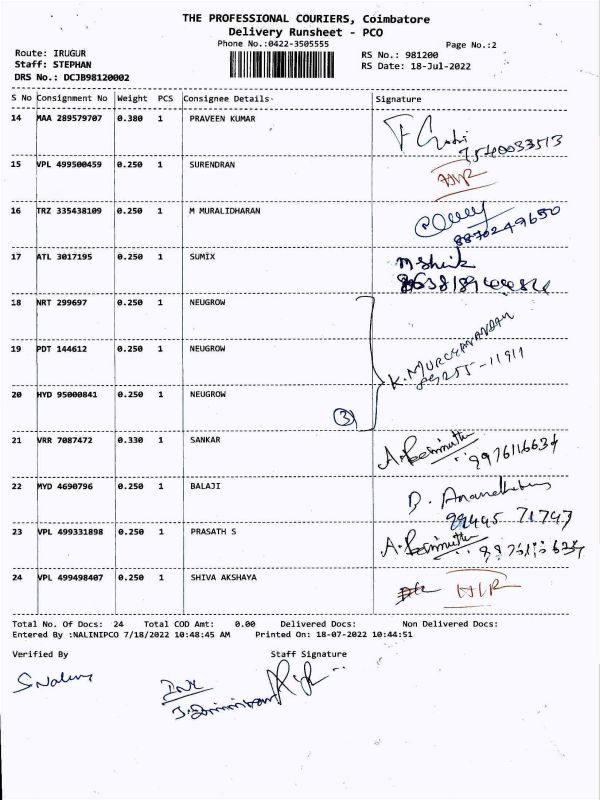 THE PROFESSIONAL COURIERS, Coimbatore
Delivery Runsheet - PCO
Phone No.:0422-3505555
Page No.:2
Route: IRUGUR
RS No.: 981200
Staff: STEPHAN
RS Date: 18-Jul-2022
DRS No.: DCJB98120002
S No Consignment No Weight PCS Consignee Details Signature
14 MAA 289579707 0.380 1 PRAVEEN KUMAR
7540033513
15 VPL 499500459 0.250 1 SURENDRAN
16 TRZ 335438109 0.250 1 M MURALIDHARAN
8870249650
17 ATL 3017195 0.250 1 SUMIX
18 NRT 299697 0.250 1 NEUGROW
19 PDT 144612 0.250 1 NEUGROW
20 HYD 95000841 0.250 1 NEUGROW
3
21 VRR 7087472 0.330 1 SANKAR
22 MYD 4690796 0.250 1 BALAJI
23 VPL 499331898 0.250 1 PRASATH S
24 VPL 499498407 0.250 1 SHIVA AKSHAYA
HIR
Total No. Of Docs: 24 Total COD Amt: 0.00 Delivered Docs: Non Delivered Docs:
Entered By :NALINIPCO 7/18/2022 10:48:45 AM Printed On: 18-07-2022 10:44:51
Verified By Staff Signature